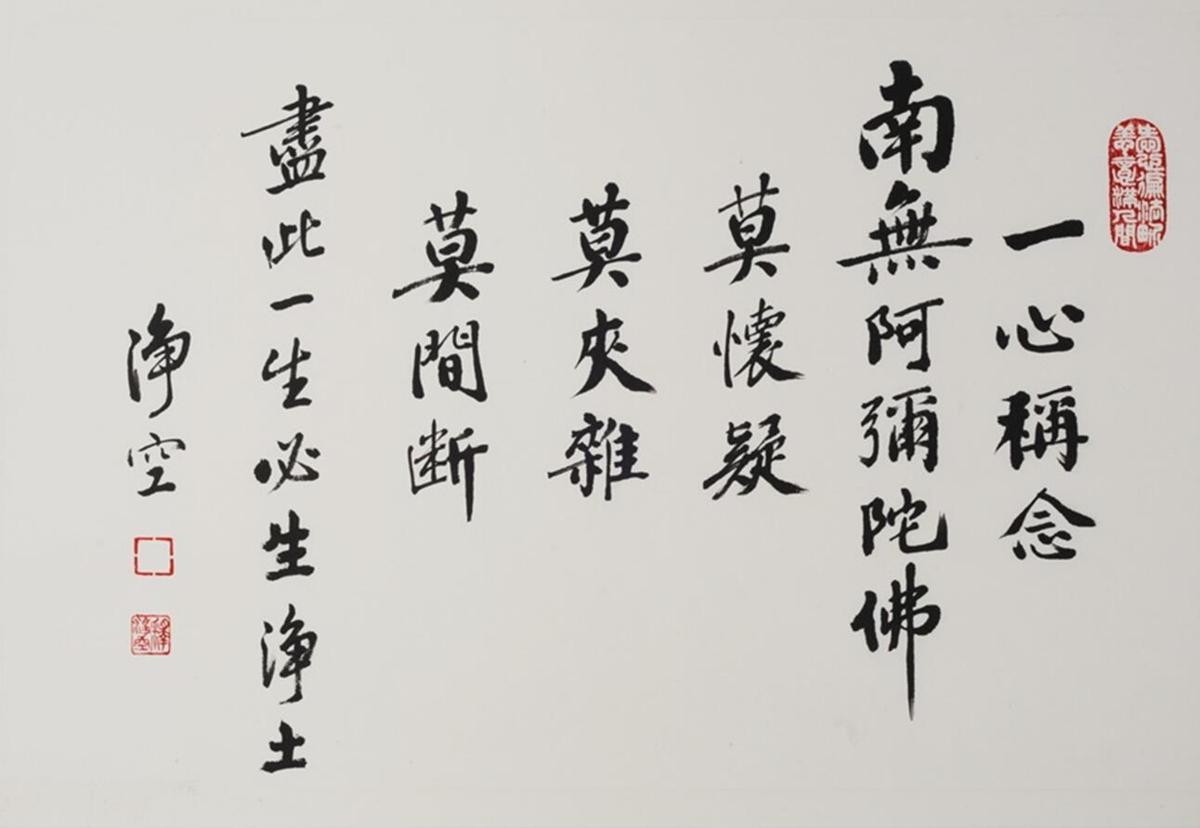 一心稱念
南無阿彌陀佛
莫懷疑
莫夾雜
莫間断
盡此一生必生淨土
淨空